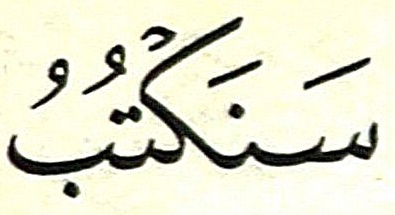 سَنَكْتُبُ